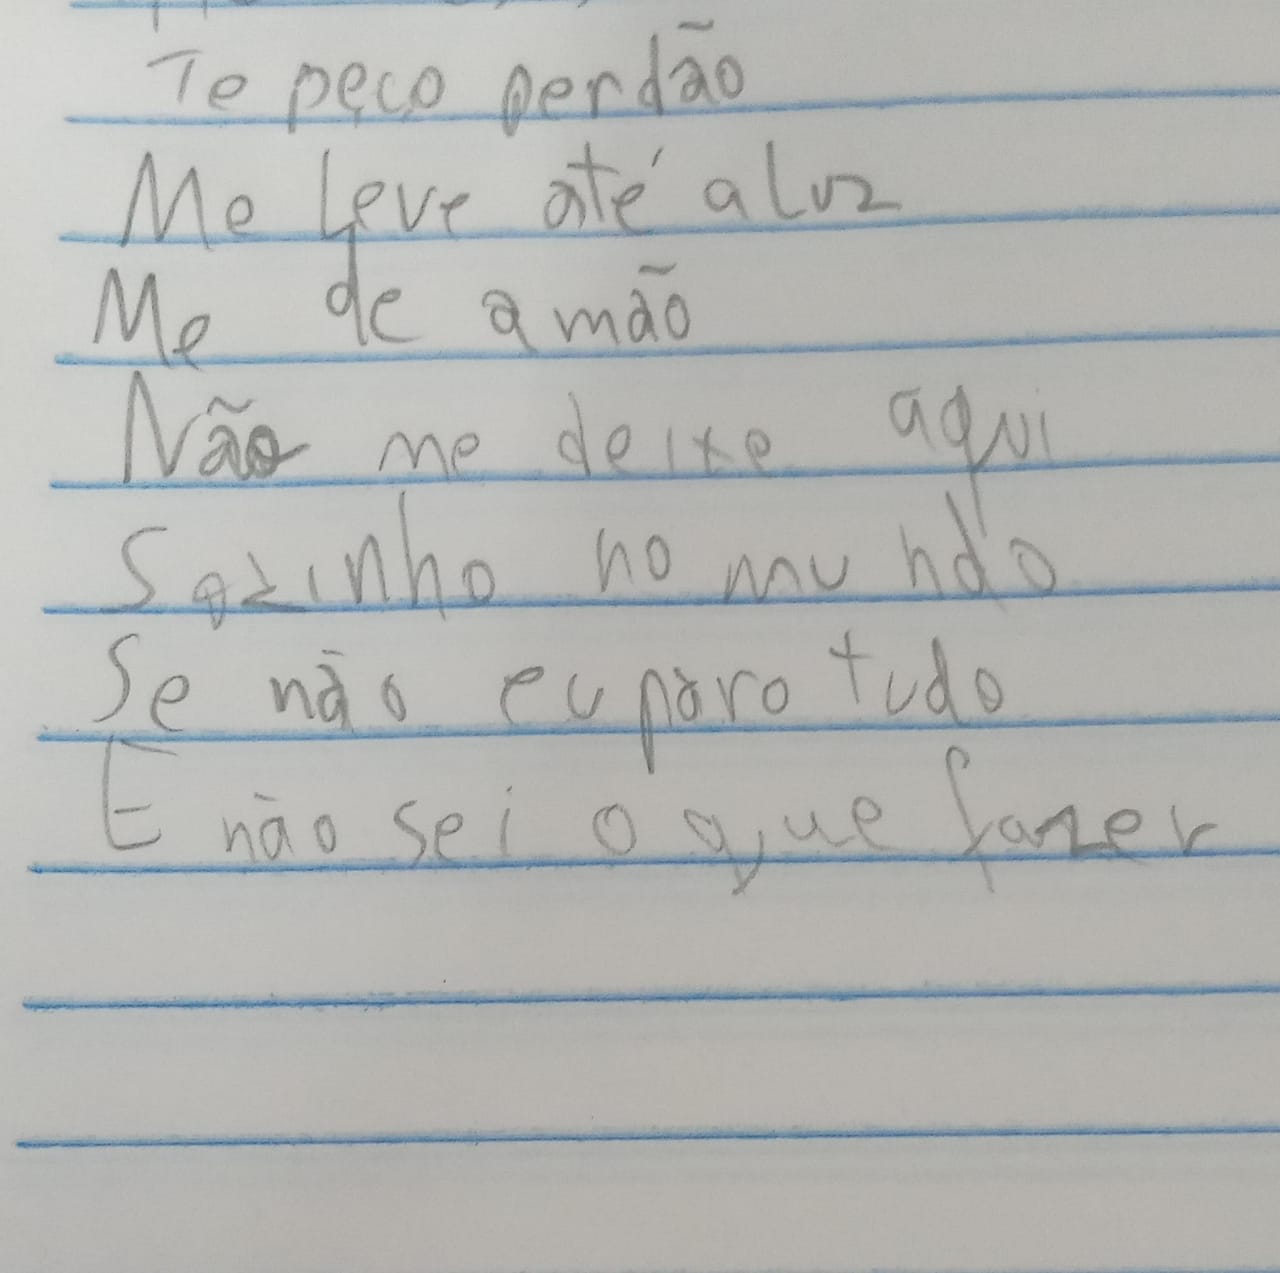 Te peço perdão
Me leve até a luz
Me de a mão
Não me deixe aqui
Sozinho no mundo
Se não eu paro tudo
E não sei o que fazer